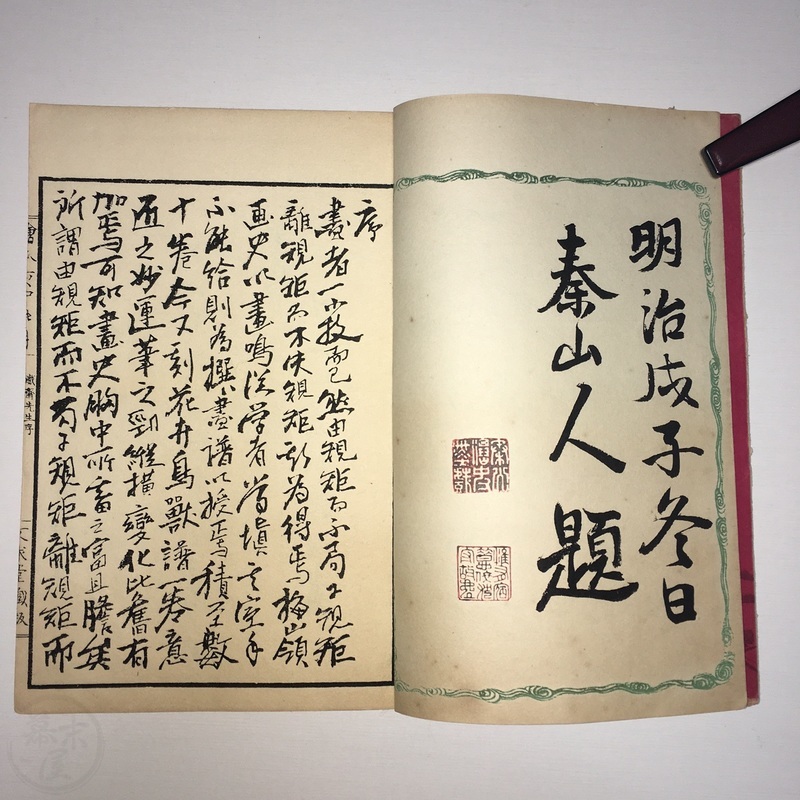 明治戊子冬日
秦山人題
序
畫者一小技而已然由規矩而不局于規矩
離規矩而不失規矩斯為得焉梅嶺
画史以畫鳴從学者常填其室手
不能給則為撰畫譜以授焉積至數
十卷今又刻花卉鳥獸譜一卷意
匠之妙運筆之勁縱橫變化比舊有
加焉可知畫史胸中所蓄之富且贍矣
所謂由規矩而不局于規矩離規矩而